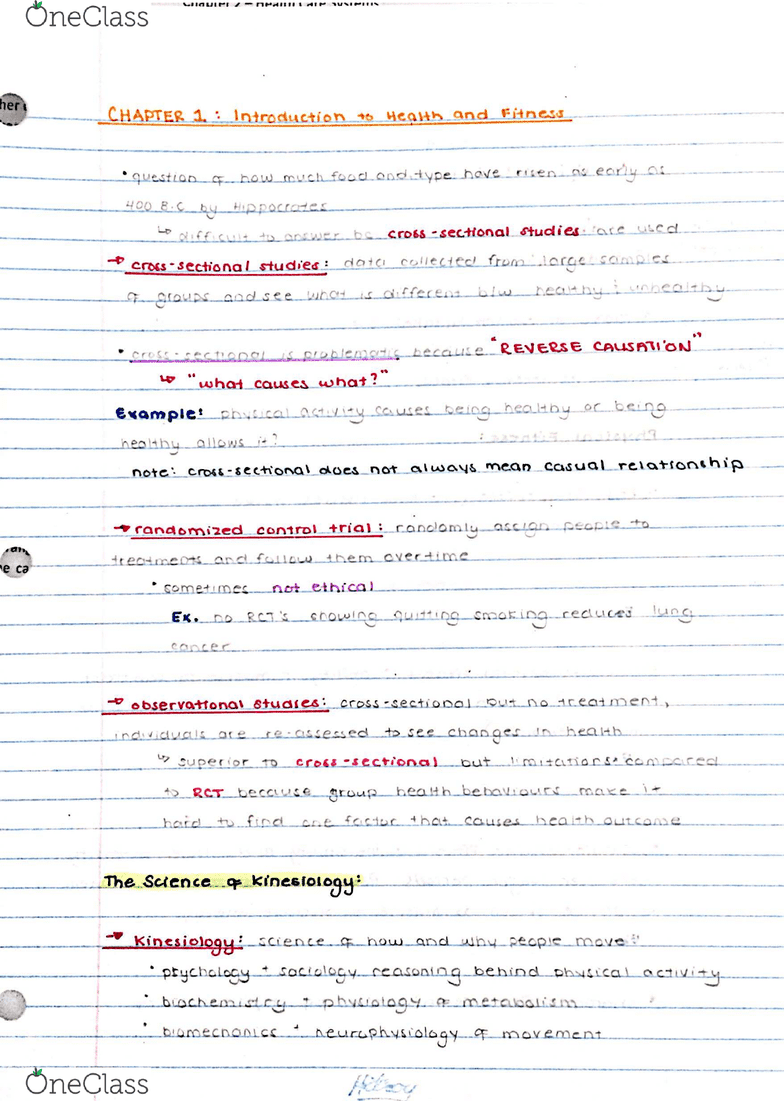 OneClass
CHAPTER 1 : Introduction to Health and Fitness
• question of how much food and type have risen as early as
400 B.C by Hippocrates
↳ difficult to answer bc cross-sectional studies are used
→ cross-sectional studies: data collected from large samples
of groups and see what is different b/w healthy : unhealthy
• cross-sectional is problematic because "REVERSE CAUSATION"
↳ "what causes what?"
Example: physical activity causes being healthy or being
healthy allows it?
note: cross-sectional does not always mean casual relationship
→ randomized control trial: randomly assign people to
treatments and follow them overtime
• sometimes not ethical
Ex. no RCT's showing quitting smoking reduces lung
cancer
→ observational studies: cross-sectional but no treatment,
individuals are re-assessed to see changes in health
↳ superior to cross-sectional but limitations compared
to RCT because group health behaviours make it
hard to find one factor that causes health outcome
The Science of Kinesiology:
→ Kinesiology: science of how and why people move:
• ptychology + sociology reasoning behind physical activity
• biochemistry + physiology of metabolism
• biomechanics + neurophysiology of movement
OneClass